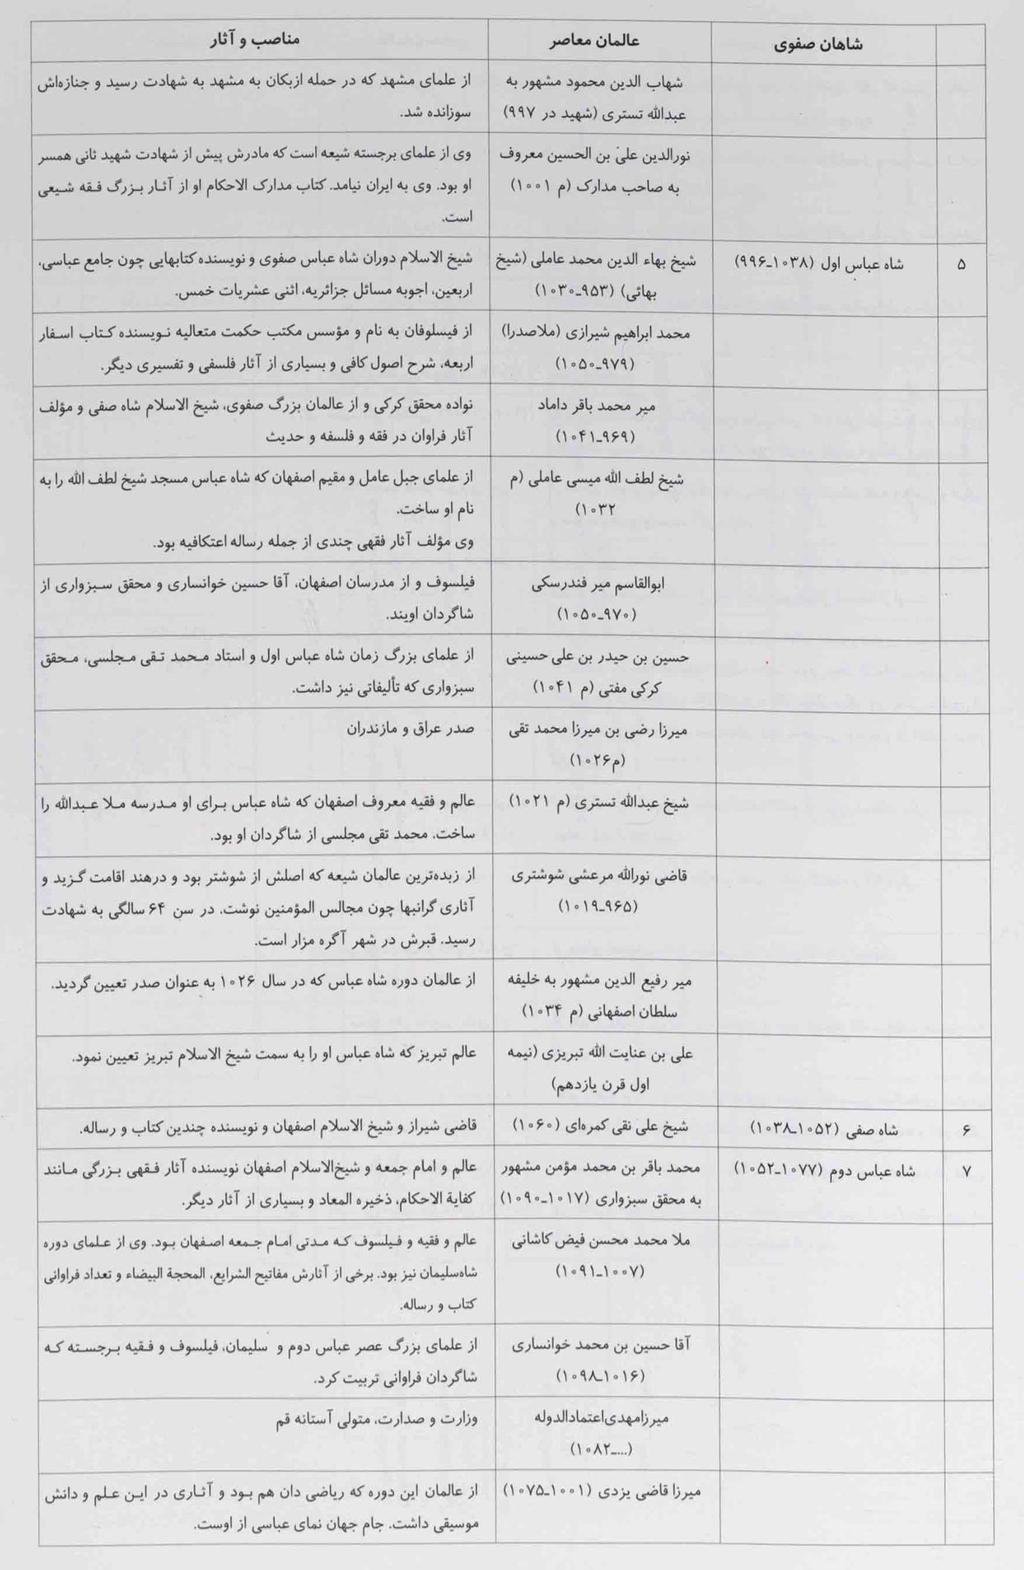 شاهان صفوی	عالمان معاصر	مناصب و آثار
شهاب الدین محمود مشهور به	از علمای مشهد که در حمله ازبکان به مشهد به شهادت رسید و جنازه‌اش
عبدالله تستری (شهید در ۹۹۷)	سوزانده شد.
نورالدین علی بن الحسین معروف	وی از علمای برجسته شیعه است که مادرش پیش از شهادت شهید ثانی همسر
به صاحب مدارک (م ۱۰۰۱)	او بود. وی به ایران نیامد. کتاب مدارک الاحکام او از آثار بزرگ فقه شیعی
است.
۵	شاه عباس اول (۱۰۳۸ـ۹۹۶)	شیخ بهاء الدین محمد عاملی (شیخ	شیخ الاسلام دوران شاه عباس صفوی و نویسنده کتابهایی چون جامع عباسی،
بهائی) (۹۵۳ـ۱۰۳۰)	اربعین، اجوبه مسائل جزائریه، اثنی عشریات خمس.
محمد ابراهیم شیرازی (ملاصدرا)	از فیسلوفان به نام و مؤسس مکتب حکمت متعالیه نویسنده کتاب اسفار
(۹۷۹ـ۱۰۵۰)	اربعه، شرح اصول کافی و بسیاری از آثار فلسفی و تفسیری دیگر.
میر محمد باقر داماد	نواده محقق کرکی و از عالمان بزرگ صفوی، شیخ الاسلام شاه صفی و مؤلف
(۹۶۹ـ۱۰۴۱)	آثار فراوان در فقه و فلسفه و حدیث
شیخ لطف الله میسی عاملی (م	از علمای جبل عامل و مقیم اصفهان که شاه عباس مسجد شیخ لطف الله را به
۱۰۳۲)	نام او ساخت.
وی مؤلف آثار فقهی چندی از جمله رساله اعتکافیه بود.
ابوالقاسم میر فندرسکی	فیلسوف و از مدرسان اصفهان، آقا حسین خوانساری و محقق سبزواری از
(۹۷۰ـ۱۰۵۰)	شاگردان اویند.
حسین بن حیدر بن علی حسینی	از علمای بزرگ زمان شاه عباس اول و استاد محمد تقی مجلسی، محقق
کرکی مفتی (م ۱۰۴۱)	سبزواری که تألیفاتی نیز داشت.
میرزا رضی بن میرزا محمد تقی	صدر عراق و مازندران
(م۱۰۲۶)
شیخ عبدالله تستری (م ۱۰۲۱)	عالم و فقیه معروف اصفهان که شاه عباس برای او مدرسه ملا عبدالله را
ساخت. محمد تقی مجلسی از شاگردان او بود.
قاضی نورالله مرعشی شوشتری	از زبده‌ترین عالمان شیعه که اصلش از شوشتر بود و درهند اقامت گزید و
(۹۶۵ـ۱۰۱۹)	آثاری گرانبها چون مجالس المؤمنین نوشت. در سن ۶۴ سالگی به شهادت
رسید. قبرش در شهر آگره مزار است.
میر رفیع الدین مشهور به خلیفه	از عالمان دوره شاه عباس که در سال ۱۰۲۶ به عنوان صدر تعیین گردید.
سلطان اصفهانی (م ۱۰۳۴)
علی بن عنایت الله تبریزی (نیمه	عالم تبریز که شاه عباس او را به سمت شیخ الاسلام تبریز تعیین نمود.
اول قرن یازدهم)
۶	شاه صفی (۱۰۵۲ـ۱۰۳۸)	شیخ علی نقی کمره‌ای (۱۰۶۰)	قاضی شیراز و شیخ الاسلام اصفهان و نویسنده چندین کتاب و رساله.
۷	شاه عباس دوم (۱۰۷۷ـ۱۰۵۲)	محمد باقر بن محمد مؤمن مشهور	عالم و امام جمعه و شیخ‌الاسلام اصفهان نویسنده آثار فقهی بزرگی مانند
به محقق سبزواری (۱۰۱۷ـ۱۰۹۰)	کفایة الاحکام، ذخیره المعاد و بسیاری از آثار دیگر.
ملا محمد محسن فیض کاشانی	عالم و فقیه و فیلسوف که مدتی امام جمعه اصفهان بود. وی از علمای دوره
(۱۰۰۷ـ۱۰۹۱)	شاه‌سلیمان نیز بود. برخی از آثارش مفاتیح الشرایع، المحجة البیضاء و تعداد فراوانی
کتاب و رساله.
آقا حسین بن محمد خوانساری	از علمای بزرگ عصر عباس دوم و سلیمان، فیلسوف و فقیه برجسته که
(۱۰۱۶ـ۱۰۹۸)	شاگردان فراوانی تربیت کرد.
میرزامهدی‌اعتمادالدوله	وزارت و صدارت، متولی آستانه قم
(....ـ۱۰۸۲)
میرزا قاضی یزدی (۱۰۰۱ـ۱۰۷۵)	از عالمان این دوره که ریاضی دان هم بود و آثاری در این علم و دانش
موسیقی داشت. جام جهان نمای عباسی از اوست.